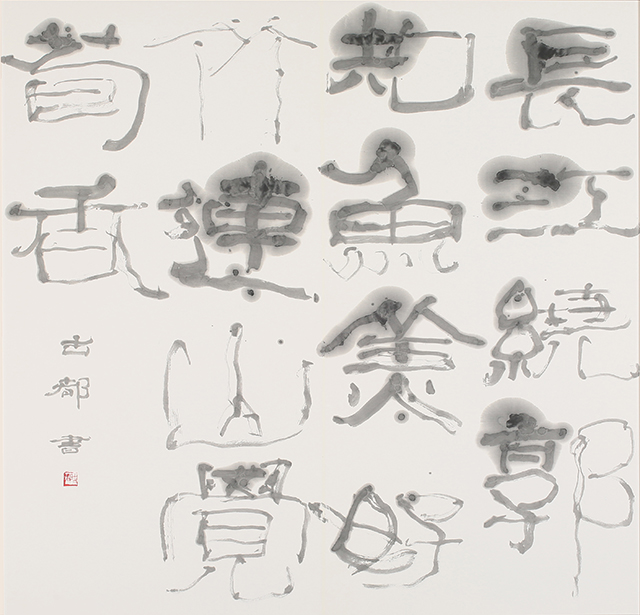 長江繞郭
知魚美好
竹連山覺
筍香
古都書